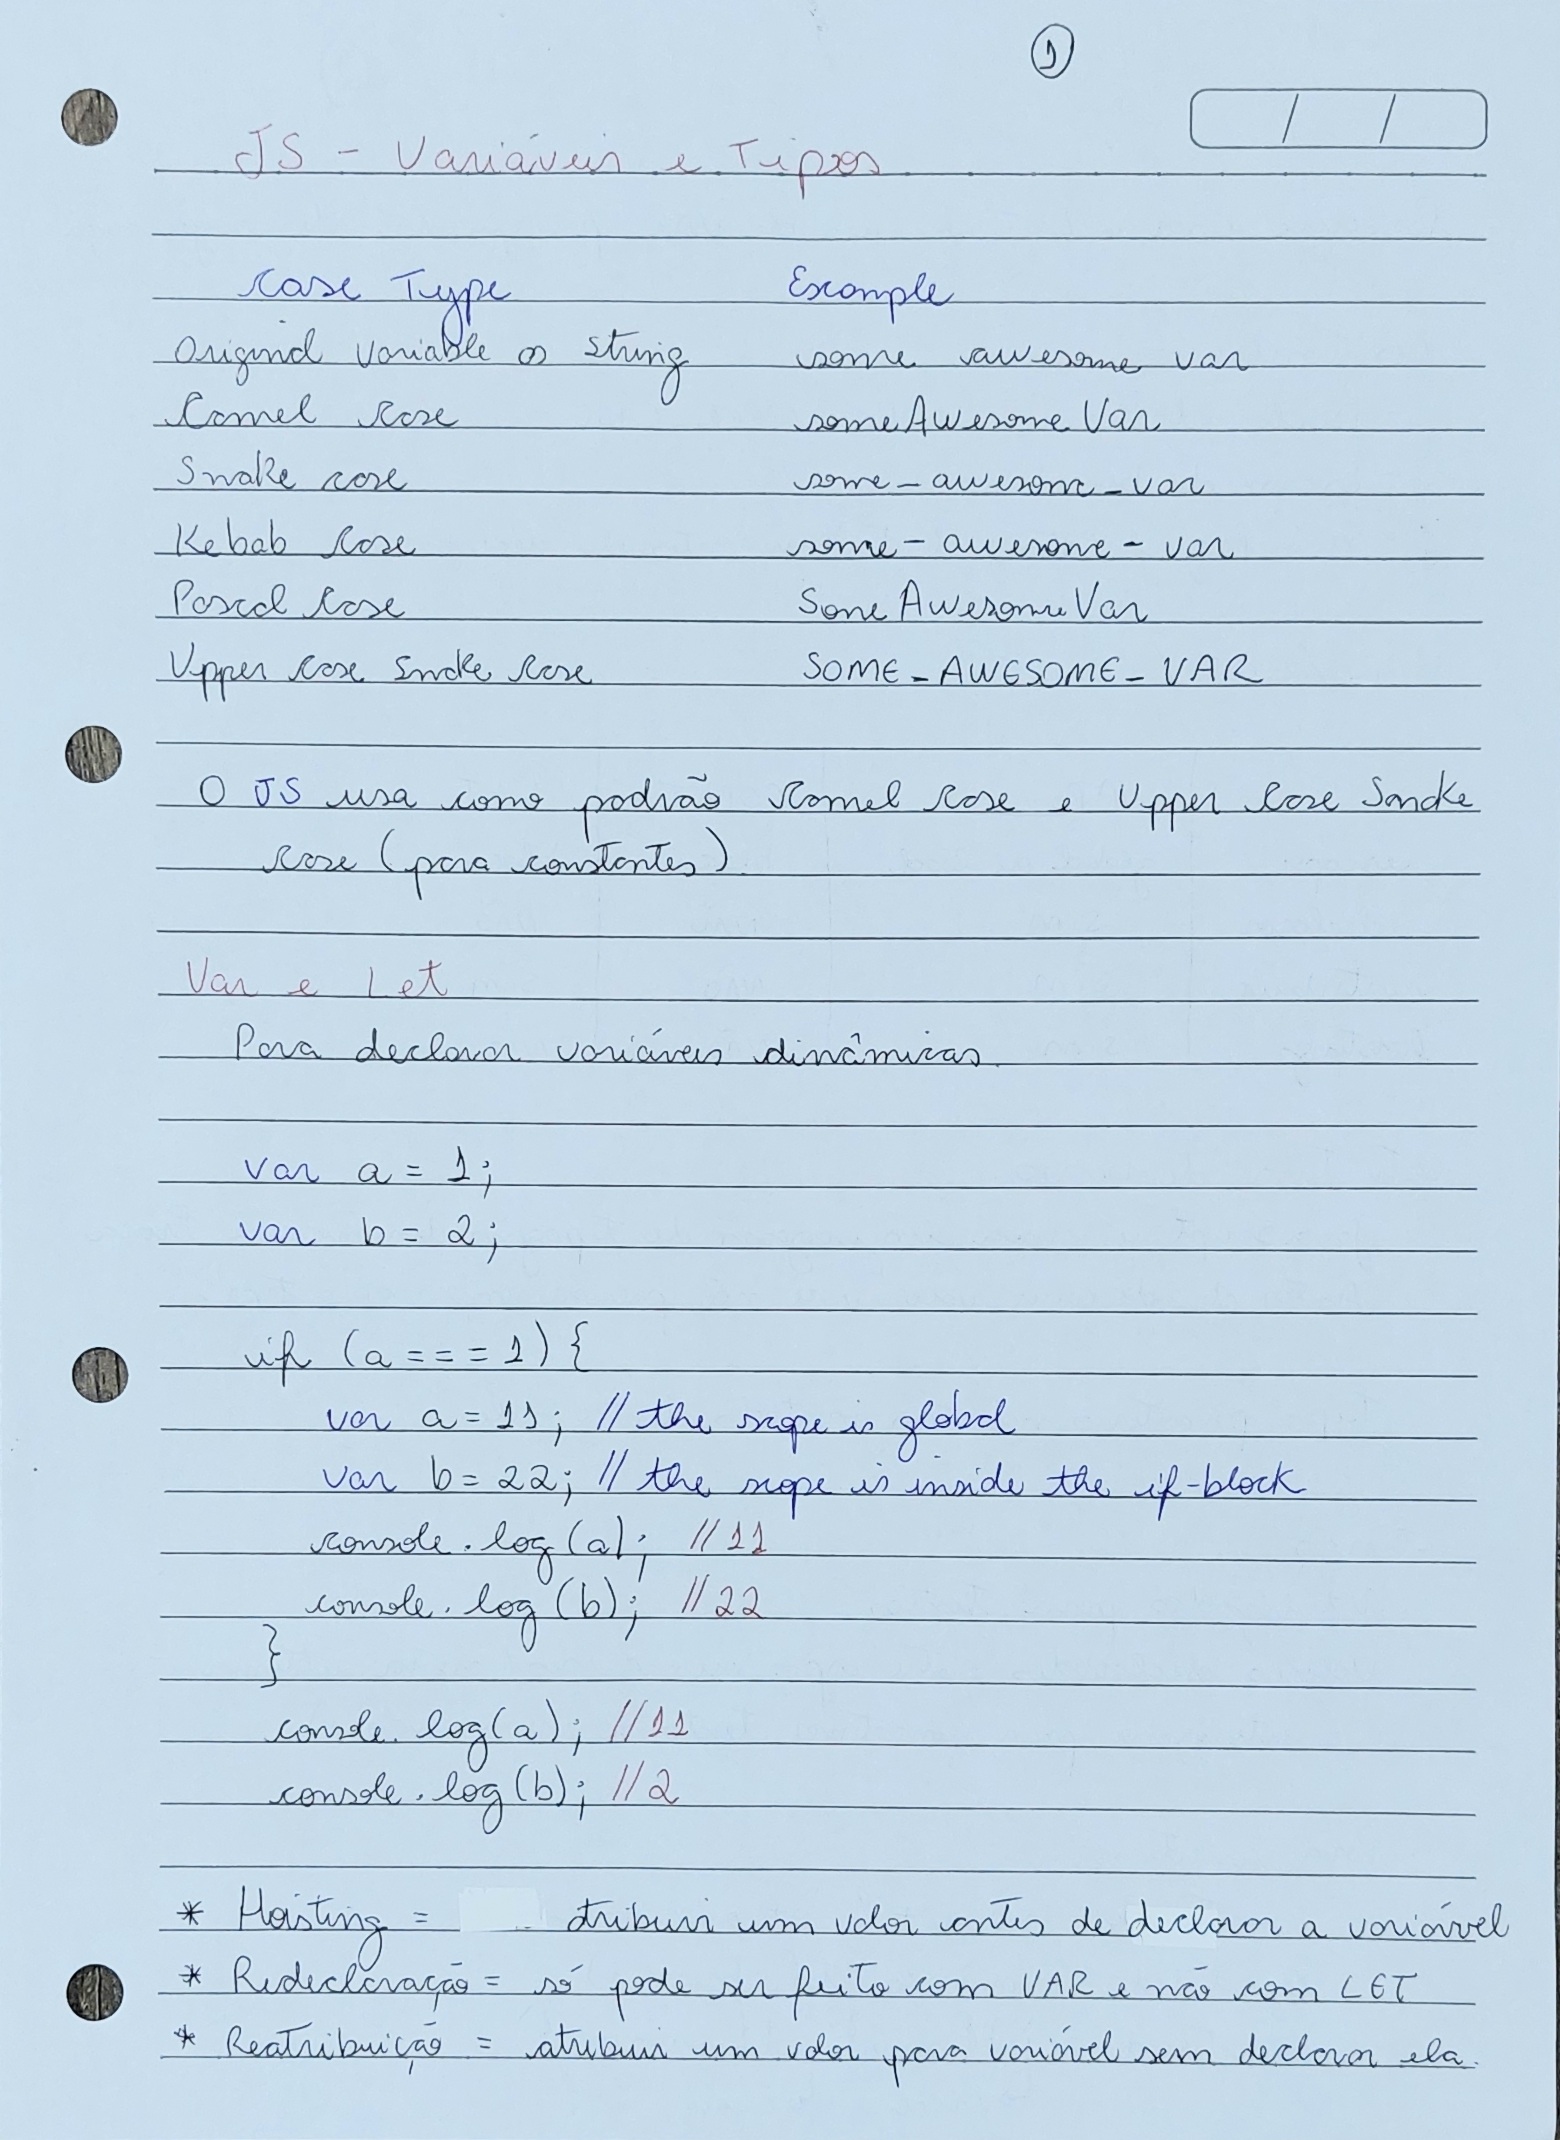 1
/ /
JS - Variáveis e Tipos
Case Type Example
Original variable as string some awesome var
Camel Case someAwesomeVar
Snake case some_awesome_var
Kebab Case some-awesome-var
Pascal Case SomeAwesomeVar
Upper Case Snake Case SOME_AWESOME_VAR
O JS usa como padrão Camel Case e Upper Case Snake
Case (para constantes)
Var e Let
Para declarar variáveis dinâmicas
var a = 1;
var b = 2;
if (a === 1) {
var a = 11; // the scope is global
var b = 22; // the scope is inside the if-block
console.log(a); // 11
console.log(b); // 22
}
console.log(a); // 11
console.log(b); // 2
* Hoisting = atribuir um valor antes de declarar a variável
* Redeclaração = só pode ser feito com VAR e não com LET
* Reatribuição = atribuir um valor para variável sem declarar ela.